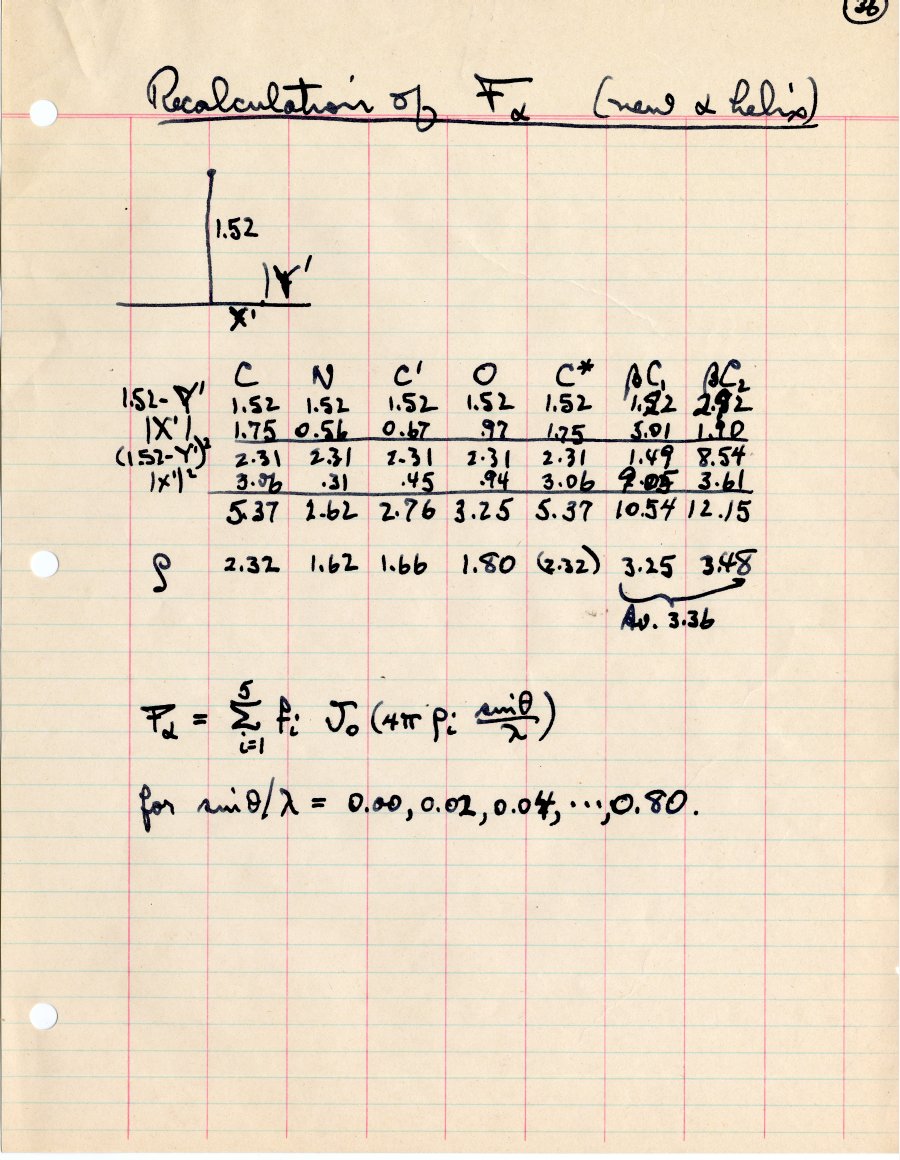 36
Recalculation of Fα (new α helix)
1.52
Y'
X'
C N C' O C* βC₁ βC₂
1.52-Y' 1.52 1.52 1.52 1.52 1.52 1.22 2.92
|X'| 1.75 0.56 0.67 .97 1.75 3.01 1.90
(1.52-Y')² 2.31 2.31 2.31 2.31 2.31 1.49 8.54
|X'|² 3.06 .31 .45 .94 3.06 9.05 3.61
5.37 2.62 2.76 3.25 5.37 10.54 12.15
ρ 2.32 1.62 1.66 1.80 (2.32) 3.25 3.48
Av. 3.36
Fα = 5∑i=1 fi J₀ (4π ρi sinθ/λ)
for sinθ/λ = 0.00, 0.02, 0.04, ···, 0.80.